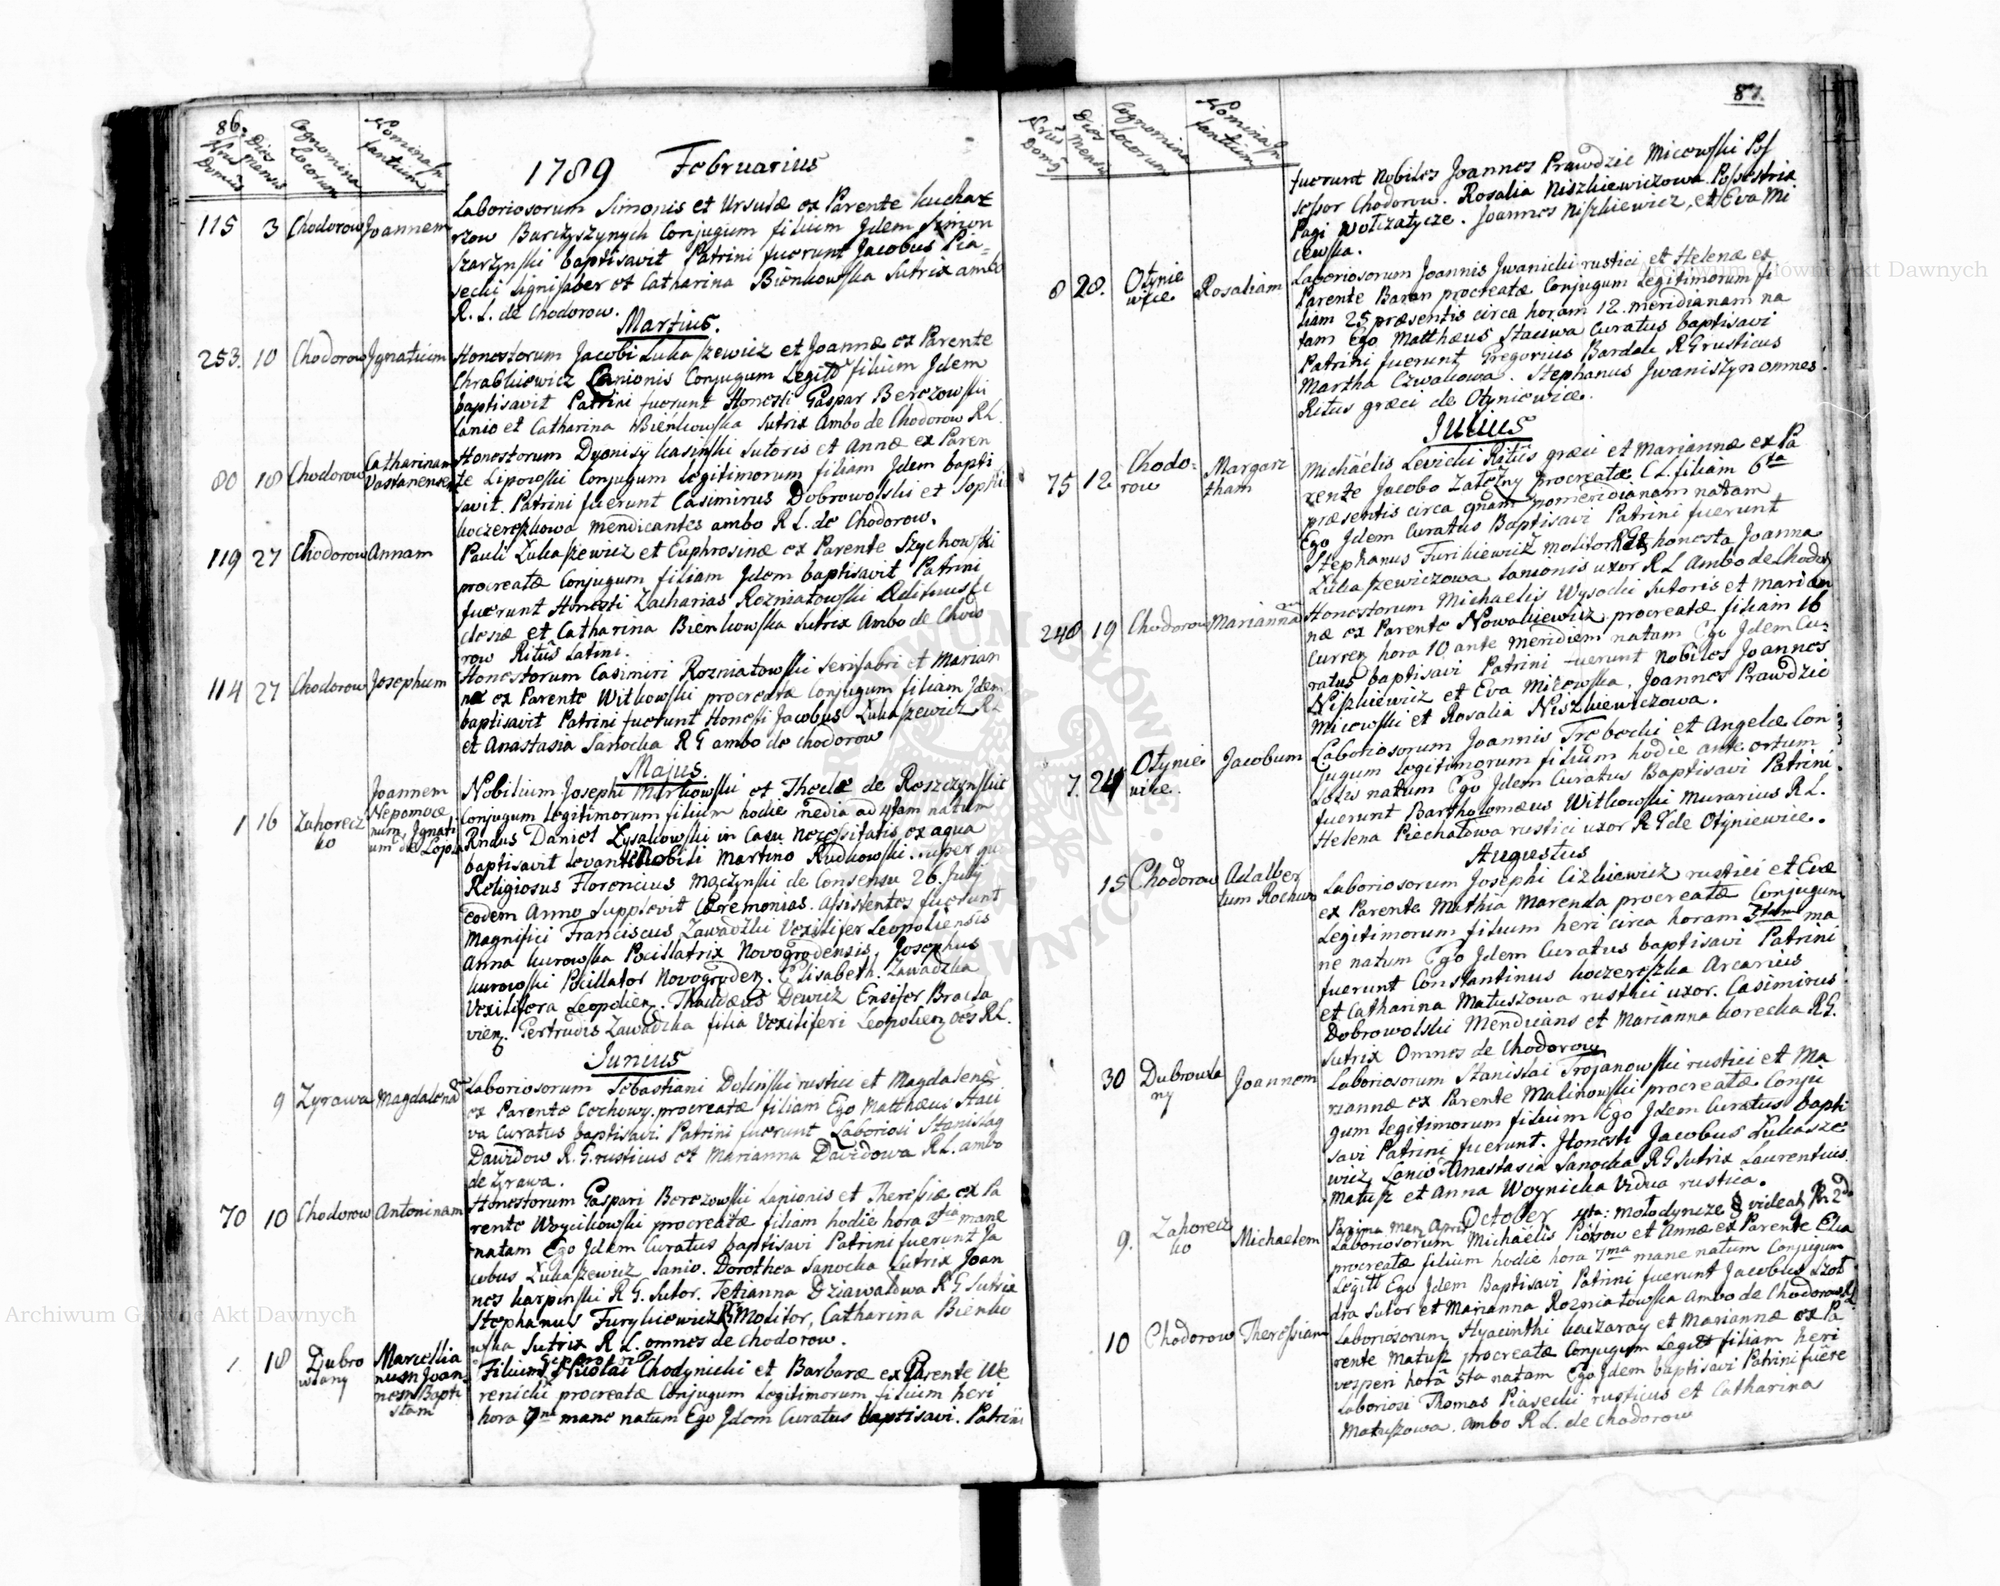 86.
Nrus Domus
Dies Mensis
Cognomina Locorum
Nomina Infantium
1789 Februarius
115 3 Chodorow Joannem
Laboriosorum Simonis et Ursulæ ex Parente Kuchar
zow Barczyszynych Conjugum filium Idem Simon
Szarzynski baptisavit Patrini fuerunt Jacobus Pia=
secki Lignifaber et Catharina Bienkowska Sutrix ambo
R. L. de Chodorow.
Martius.
253. 10 Chodorow Ignatium
Honestorum Jacobi Lukaszewicz et Joannæ ex Parente
Chrabkiewicz Lanionis Conjugum Legitō filium Idem
baptisavit Patrini fuerunt Honesti Gaspar Berezowski
Lanio et Catharina Bieńkowska Sutrix Ambo de Chodorow R L.
80 18 Chodorow Catharinam
Honestorum Dyonisÿ Kasinski Sutoris et Annæ ex Paren
te Lipowski Conjugum Legitimorum filiam Idem bapti
savit. Patrini fuerunt Casimirus Dobrowolski et Sophi
Koczereszkowa Mendicantes ambo R L. de Chodorow.
119 27 Chodorow Annam
Pauli Lukaszewicz et Euphrosinæ ex Parente Szychowski
procreatæ Conjugum filiam Idem baptisavit Patrini
fuerunt Honesti Zacharias Rozniatowski Aedituus Ec
clesiæ et Catharina Bienkowska Sutrix Ambo de Chodo
row Ritûs Latini.
114 27 Chodorow Josephum
Honestorum Casimiri Rozniatowski Serifabri et Marian
næ ex Parente Witkowski procreatæ Conjugum filium Idem
baptisavit Patrini fuerunt Honesti Jacobus Lukaszewicz R L
et Anastasia Sanocka R G ambo de Chodorow
Majus
1 16 Zahorecz
ko
Joannem
Nepomuce
num, Ignati
um de Lojola
Nobilium Josephi Mirkowski et Theclæ de Roszczynskie
Conjugum legitimorum filium hodie media ad 4tam natum
Rndus Daniel Łysakowski in Casu necessitatis ex aqua
baptisavit levante Nobili Martino Rudkowski. super qu
Religiosus Florencius Mączynski de Consensu 26. Julij
eodem Anno Supplevit Cæremonias. Assistentes fuerunt
Magnifici Franciscus Zawadzki Vexilifer Leopoliensis
Anna Kurowska Pocillatrix Novogrodensis, Josephus
Kurowski Pocillator Novogroden. Elisabeth. Zawadzka
Vexilifera Leopolien. Thaddæus Dewicz Ensifer Bracla
vien. Gertrudis Zawadzka filia Vexiliferi Leopolien oēs R L.
Junius
9 Zyrawa Magdalenā
Laboriosorum Sebastiani Dolinski rustici et Magdalenæ
ex Parente Cochowy procreatæ filiam Ego Matthæus Staci
va Curatus baptisavi Patrini fuerunt Laboriosi Stanislaq
Dawidow R. G. rusticus et Marianna Dawidowa R L. ambo
de Zyrawa.
70 10 Chodorow Antoninam
Honestorum Gaspari Berezowski Lanionis et Theresiæ ex Pa
rente Woycikowski procreatæ filiam hodie hora 3tia mane
natam Ego Idem Curatus baptisavi Patrini fuerunt Ja
cobus Lukaszewicz Lanio. Dorothea Sanocka Sutrix Joan
nes Karpinski R G. Sutor. Tetianna Dziawalowa R G Sutrix
Stephanus Furykiewicz Molitor, Catharina Bienko
wska Sutrix R L. omnes de Chodorow.
1. 18 Dubro
wlany
Marcellia
num Joan
nem Bapti
stam
Filium Nicolai Chodynicki et Barbaræ ex Parente We
renicki procreatæ Conjugum Legitimorum filium heri
hora 9na mane natum Ego Idem Curatus baptisavi. Patrini
87.
Nrus Domus
Dies Mensis
Cognomina Locorum
Nomina Infantium
fuerunt Nobiles Joannes Prawdzic Micowski Pos
sessor Chodorow. Rosalia Niszkiewiczowa Possestrix
Pagi Wolczatycze. Joannes Niszkiewicz, et Eva Mi
cewska.
8 28. Otynie
wice
Rosaliam
Laboriosorum Joannis Iwanicki rustici et Helenæ ex
Parente Baran procreatæ Conjugum Legitimorum fi
liam 25 præsentis circa horam 12. meridianam na
tam Ego Matthæus Staciwa Curatus baptisavi
Patrini fuerunt Gregorius Bardak R G rusticus
Martha Czwakowa. Stephanus Iwaniszyn omnes
Ritus græci de Otyniewice.
Julius
75 12 Chodo-
row
Margari
tham
Michaëlis Levicki Ritûs græci et Mariannæ ex Pa
rente Jacobo Zatczny procreatæ C L. filiam 6ta
præsentis circa qnam pomeridianam natam
Ego Idem Curatus Baptisavi Patrini fuerunt
Stephanus Furikiewicz Molitor R G, honesta Joanna
Lukaszewiczowa Lanionis uxor R L Ambo de Chodor
248 19 Chodorow Mariannam
Honestorum Michaelis Wysocki Sutoris et Marian
næ ex Parente Nowakiewicz procreatæ filiam 16
Curren hora 10 ante meridiem natam Ego Idem Cu-
ratus baptisavi Patrini fuerunt Nobiles Joannes
Niszkiewicz et Eva Micewska, Joannes Prawdzic
Micowski et Rosalia Niszkiewiczowa.
7. 24 Otynie
wice.
Jacobum
Laboriosorum Joannis Trebecki et Angelæ Con
jugum legitimorum filium hodie ante ortum
Solis natum Ego Idem Curatus Baptisavi Patrini
fuerunt Bartholomæus Witkowski Murarius R L.
Helena Piechatowa rustici uxor R G de Otyniewice.
Augustus
15 Chodorow Adalber
tum Rochum
Laboriosorum Josephi Cizkiewicz rustici et Evæ
ex Parente Mathia Marenda procreatæ Conjugum
Legitimorum filium heri circa horam 5tam ma
ne natum Ego Idem Curatus baptisavi Patrini
fuerunt Constantinus Koczereszka Arcarius
et Catharina Matuszowa rustici uxor. Casimirus
Dobrowolski Mendicans et Marianna Korecka R G.
Sutrix Omnes de Chodorow
30 Dubrowla
ny
Joannem
Laboriosorum Stanislai Trojanowski rustici et Ma
riannæ ex Parente Malinowski procreatæ Conju
gum legitimorum filium Ego Idem Curatus bapti
savi Patrini fuerunt. Honesti Jacobus Lukasze
wicz Lanio Anastasia Sanocka R G Sutrix Laurentius
Matusz et Anna Woynicka Vidua rustica.
October
9. Zahorecz
ko
Michaelem
Laboriosorum Michaëlis Piotrow et Annæ ex Parente Elia
procreatæ filium hodie hora 7ma mane natum Conjugum
Legitt Ego Idem Baptisavi Patrini fuerunt Jacobus Szol
dra Sutor et Marianna Rozniatowska Ambo de Chodorow R L
10 Chodorow Theressiam
Laboriosorum Hyacinthi Kaczaray et Mariannæ ex Pa
rente Matusz procreatæ Conjugum Legitt filiam heri
vesperi horâ 5ta natam Ego Idem baptisavi Patrini fuēre
Laboriosi Thomas Piasecki rusticus et Catharina
Matuszowa. Ambo R L. de Chodorow
Archiwum Główne Akt Dawnych
Archiwum Główne Akt Dawnych
ARCHIWUM GŁÓWNE AKT DAWNYCH